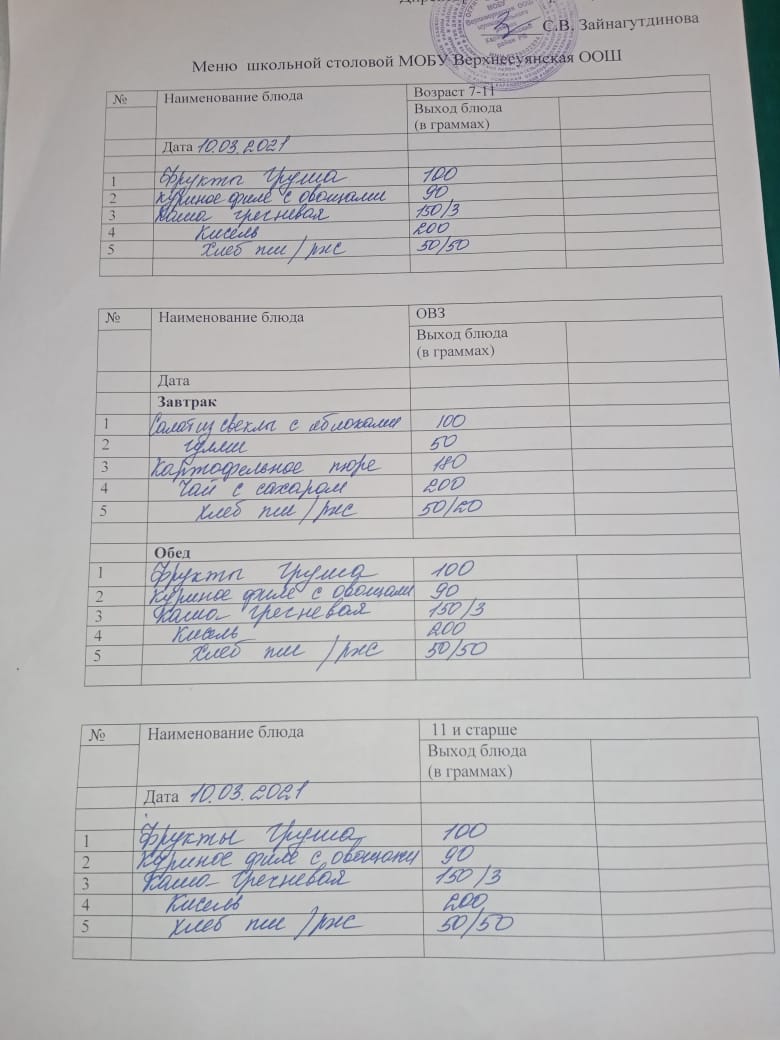 С.В. Зайнагутдинова
Меню школьной столовой МОБУ Верхнесуянская ООШ
№ Наименование блюда Возраст 7-11
Выход блюда
(в граммах)
Дата 10.03.2021
1 Фрукты Груша 100
2 Куриное филе с овощами 90
3 Каша гречневая 150/3
4 Кисель 200
5 Хлеб пш/ржс 50/50
№ Наименование блюда ОВЗ
Выход блюда
(в граммах)
Дата
Завтрак
1 Салат из свеклы с яблоками 100
2 гуляш 50
3 Картофельное пюре 180
4 Чай с сахаром 200
5 Хлеб пш/ржс 50/20
Обед
1 Фрукты Груша 100
2 Куриное филе с овощами 90
3 Каша гречневая 150/3
4 Кисель 200
5 Хлеб пш/ржс 50/50
№ Наименование блюда 11 и старше
Выход блюда
(в граммах)
Дата 10.03.2021
1 Фрукты Груша 100
2 Куриное филе с овощами 90
3 Каша гречневая 150/3
4 Кисель 200
5 Хлеб пш/ржс 50/50